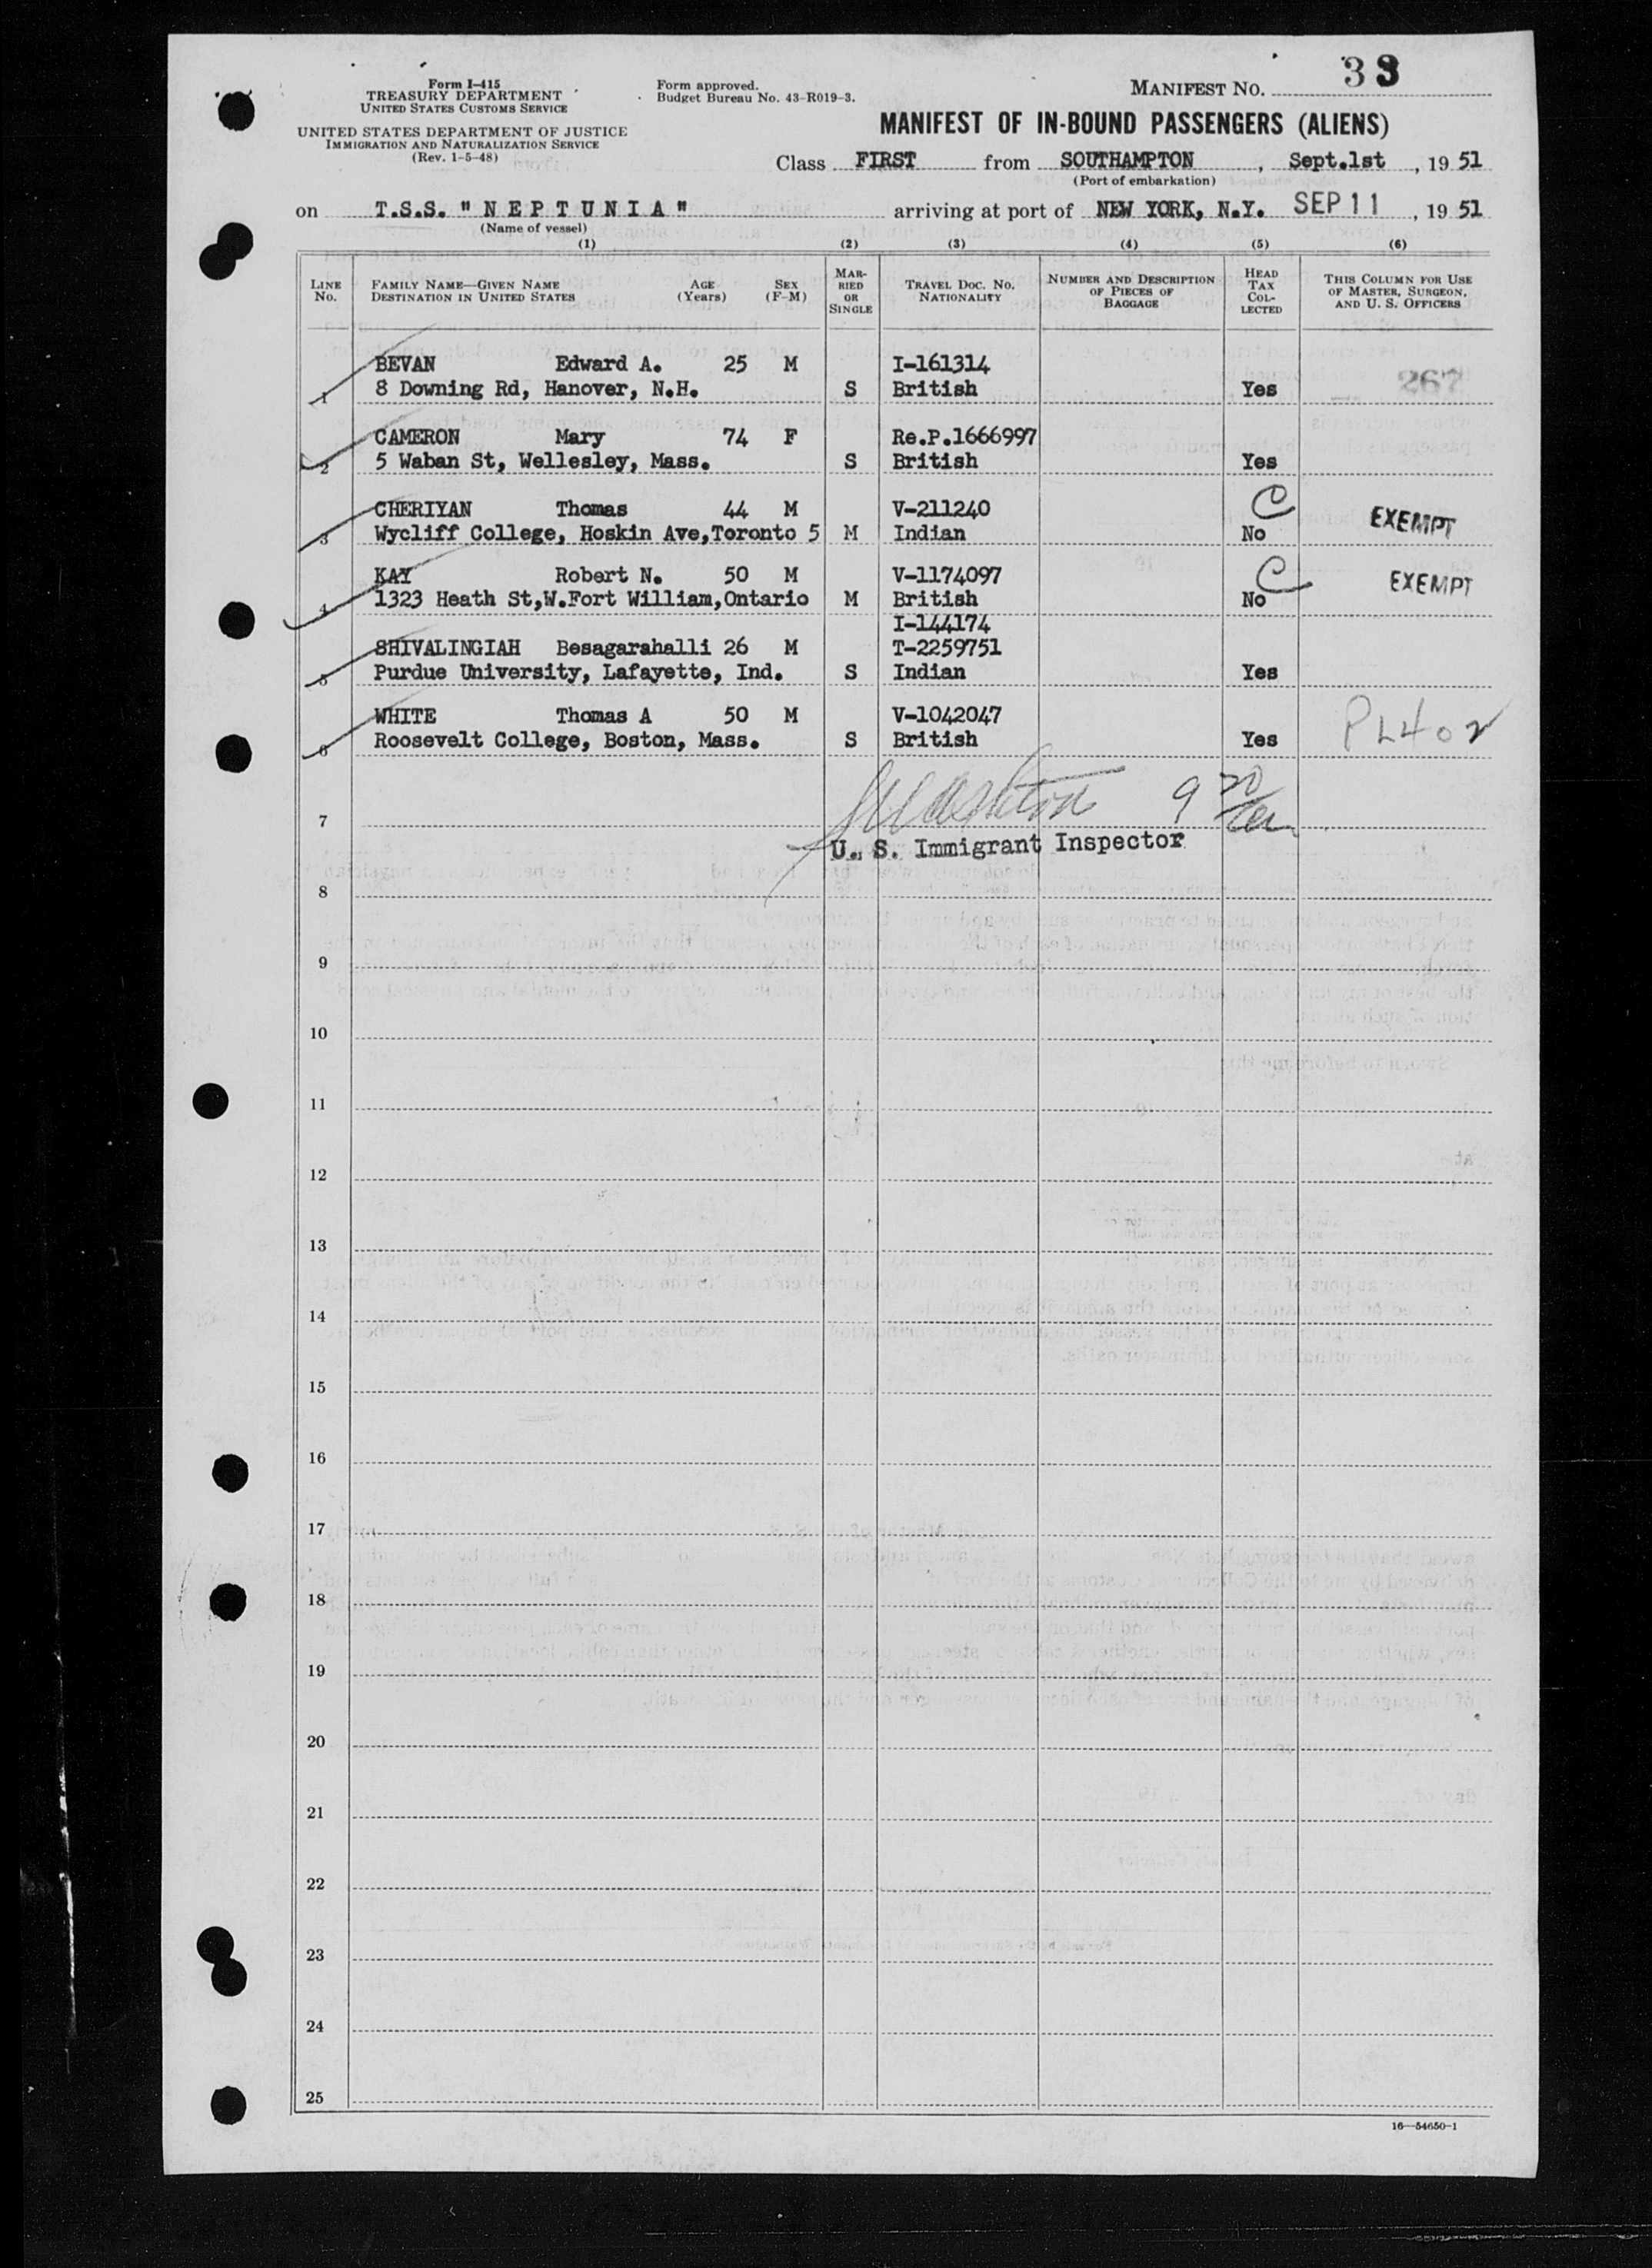 Form I-415
TREASURY DEPARTMENT
UNITED STATES CUSTOMS SERVICE
UNITED STATES DEPARTMENT OF JUSTICE
IMMIGRATION AND NATURALIZATION SERVICE
(Rev. 1-5-48)
Form approved.
Budget Bureau No. 43-R019-3.
MANIFEST NO. 33
MANIFEST OF IN-BOUND PASSENGERS (ALIENS)
Class FIRST from SOUTHAMPTON, Sept.1st, 1951
(Port of embarkation)
on T.S.S. "NEPTUNIA" arriving at port of NEW YORK, N.Y. SEP 11, 1951
(Name of vessel)
(1) (2) (3) (4) (5) (6)
LINE No. FAMILY NAME—GIVEN NAME DESTINATION IN UNITED STATES AGE (Years) SEX (F-M) MARRIED OR SINGLE TRAVEL DOC. NO. NATIONALITY NUMBER AND DESCRIPTION OF PIECES OF BAGGAGE HEAD TAX COLLECTED THIS COLUMN FOR USE OF MASTER, SURGEON, AND U. S. OFFICERS
BEVAN Edward A. 25 M I-161314
1 8 Downing Rd, Hanover, N.H. S British Yes 267
CAMERON Mary 74 F Re.P.1666997
2 5 Waban St, Wellesley, Mass. S British Yes
CHERIYAN Thomas 44 M V-211240 C EXEMPT
3 Wycliff College, Hoskin Ave,Toronto 5 M Indian No
KAY Robert N. 50 M V-1174097 C EXEMPT
4 1323 Heath St,W.Fort William,Ontario M British No
I-144174
SHIVALINGIAH Besagarahalli 26 M T-2259751
5 Purdue University, Lafayette, Ind. S Indian Yes
WHITE Thomas A 50 M V-1042047 PL402
6 Roosevelt College, Boston, Mass. S British Yes
7
U. S. Immigrant Inspector
8
9
10
11
12
13
14
15
16
17
18
19
20
21
22
23
24
25
16—54650-1